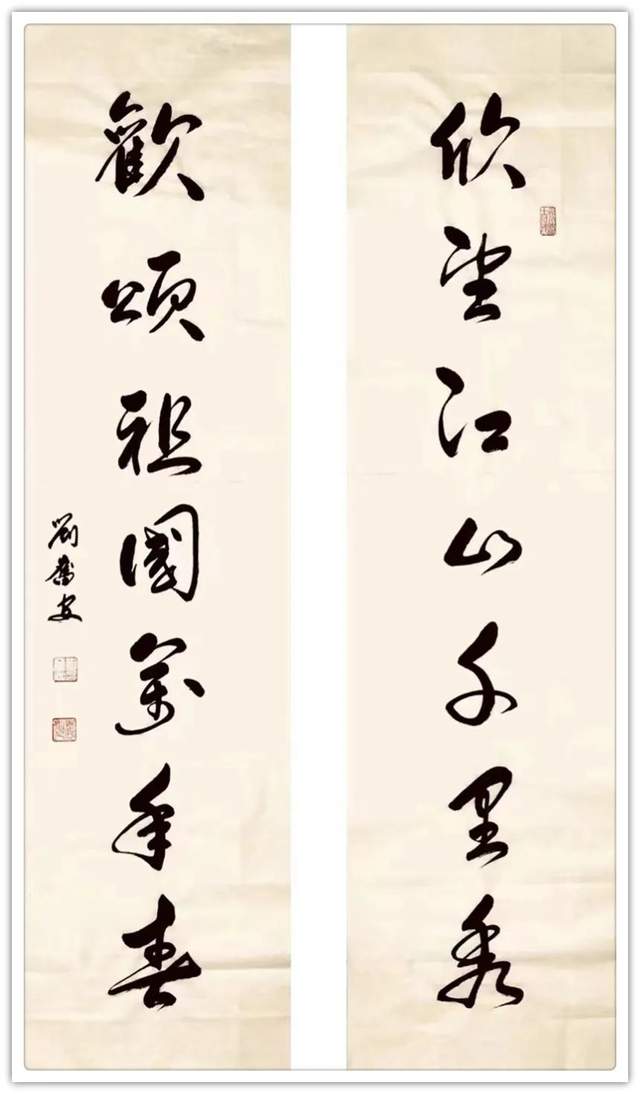 欣望江山千里秀
歡頌祖國萬年春
劉奮安